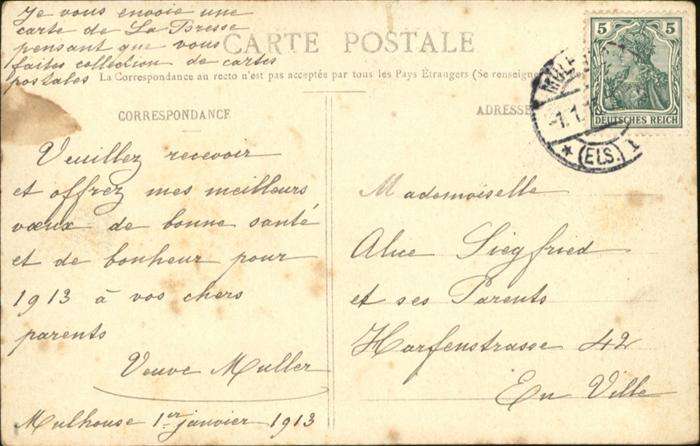 Je vous envoie une
carte de La Bresse
pensant que vous
faites collection de cartes
postales
CARTE POSTALE
La Correspondance au recto n'est pas acceptée par tous les Pays Étrangers (Se renseigner
CORRESPONDANCE
Veuillez recevoir
et offrez mes meilleurs
vœux de bonne santé
et de bonheur pour
1913 à vos chers
parents
Veuve Muller
Mulhouse 1er janvier 1913
5 5
DEUTSCHES REICH
-1.1.
(ELS.) 1
ADRESSE
Mademoiselle
Alice Siegfried
et ses Parents
Harfenstrasse 42
En Ville